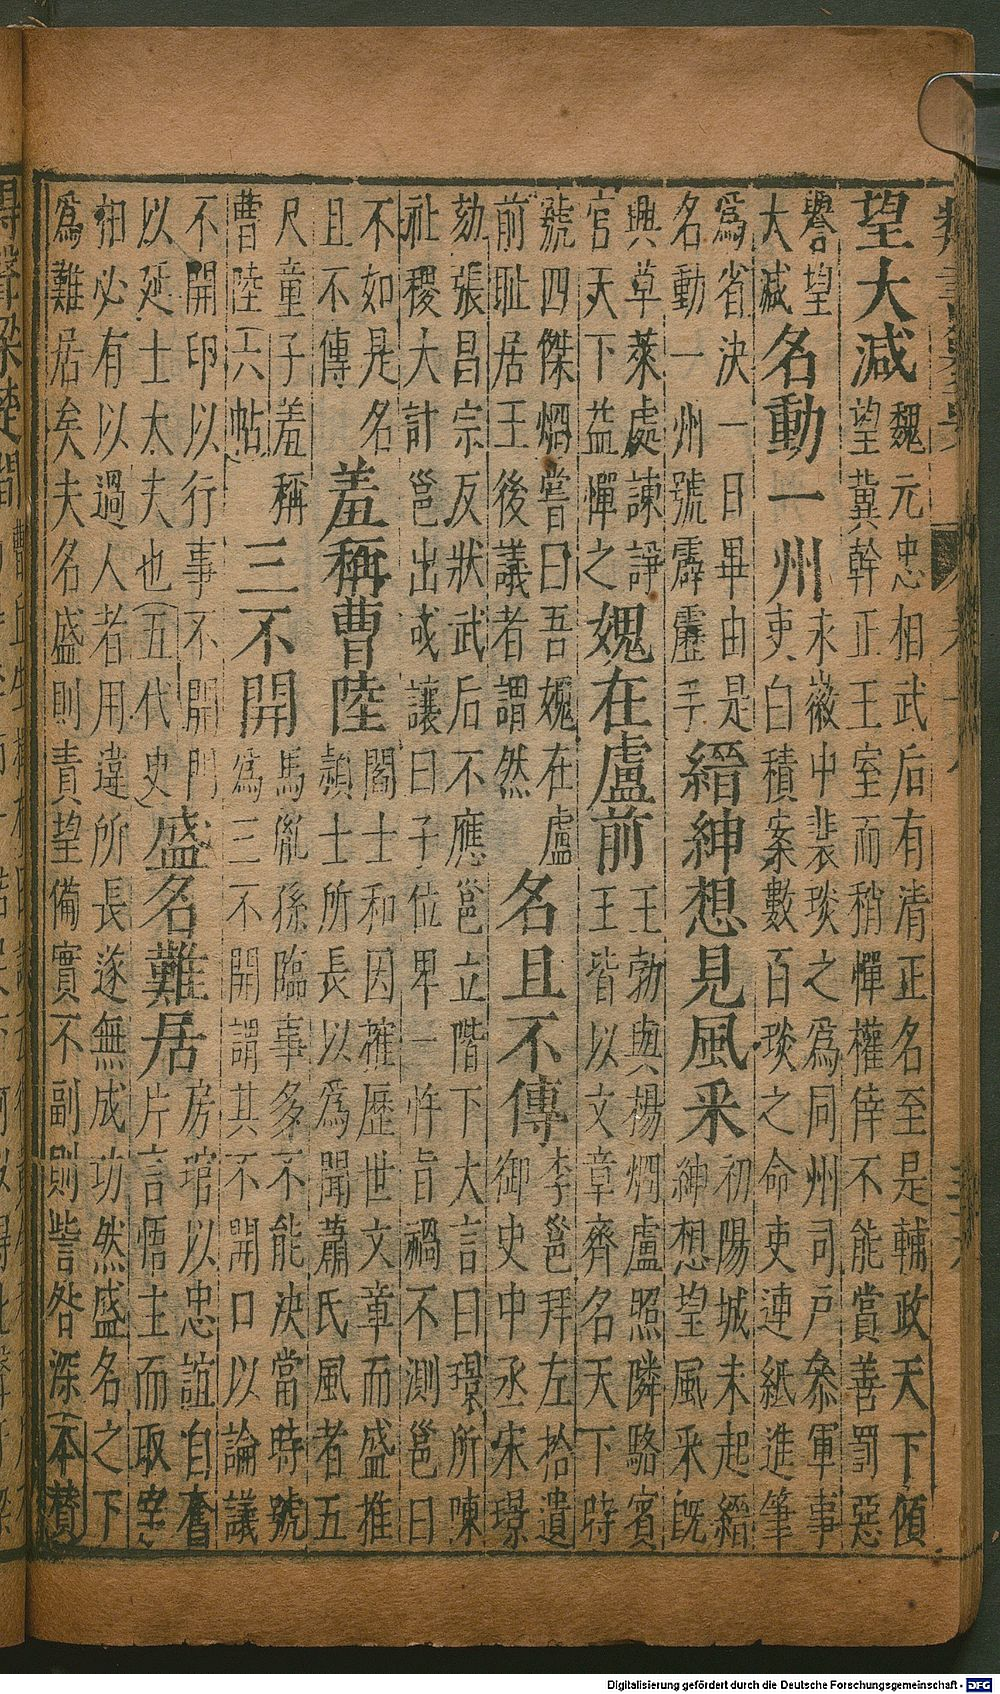 望大減
魏元忠相武后有清正名至是輔政天下傾
望冀幹正王室而稍憚權倖不能賞善罰惡
譽望
大減
名動一州
永徽中裴琰之為同州司戶參軍事
吏白積案數百琰之命吏連紙進筆
為省決一日畢由是
名動一州號霹靂手
縉紳想見風采
初陽城未起縉
紳想望風采既
興草萊處諫諍
官天下益憚之
媿在盧前
王勃與楊烱盧照隣駱賓
王皆以文章齊名天下時
號四傑烱嘗曰吾媿在盧
前耻居王後議者謂然
名且不傳
李邕拜左拾遺
御史中丞宋璟
劾張昌宗反狀武后不應邕立階下大言曰璟所陳
社稷大計邕出或讓曰子位卑一忤旨禍不測邕曰
不如是名
且不傳
羞稱曹陸
閻士和因㩁歷世文章而盛推
頴士所長以為聞蕭氏風者五
尺童子羞稱
曹陸(六帖)
三不開
馬胤孫臨事多不能決當時號
為三不開謂其不開口以論議
不開印以行事不開門
以延士大夫也(五代史)
盛名難居
房琯以忠誼自奮
片言悟主而取宰
相必有以過人者用違所長遂無成功然盛名之下
為難居矣夫名盛則責望備實不副則訾咎深(本贊)
Digitalisierung gefördert durch die Deutsche Forschungsgemeinschaft - DFG